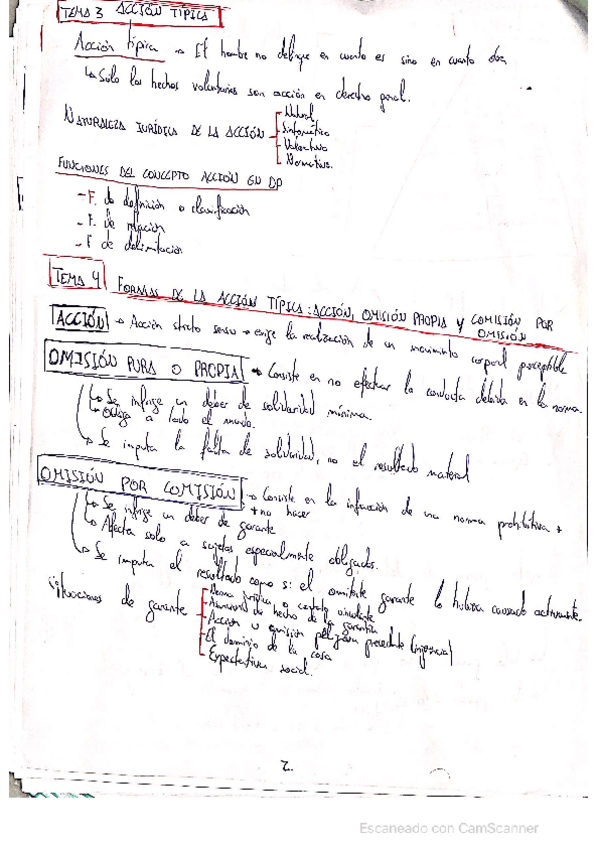 TEMA 3 ACCIÓN TÍPICA
Acción típica → El hombre no delinque en cuanto es sino en cuanto obra
↳ Sólo los hechos voluntarios son acción en derecho penal.
NATURALEZA JURÍDICA DE LA ACCIÓN
Natural
Sintomático
Valorativo
Normativo.
FUNCIONES DEL CONCEPTO ACCIÓN EN DP
- F. de definición o clasificación
- F. de relación
- F de delimitación
TEMA 4 FORMAS DE LA ACCIÓN TÍPICA: ACCIÓN, OMISIÓN PROPIA Y COMISIÓN POR
OMISIÓN
ACCIÓN → Acción stricto sensu → exige la realización de un movimiento corporal perceptible
OMISIÓN PURA O PROPIA → Consiste en no efectuar la conducta debida en la norma.
↳ Se infringe un deber de solidaridad mínima.
↳ Obliga a todo el mundo.
↳ Se imputa la falta de solidaridad, no el resultado material
OMISIÓN POR COMISIÓN → Consiste en la infracción de una norma prohibitiva +
+ no hacer
↳ Se infringe un deber de garante
↳ Afecta solo a sujetos especialmente obligados.
↳ Se imputa el resultado como si el omitente garante lo hubiera causado activamente.
Situaciones de garante
Norma jurídica o contrato vinculante
Asunción de hecho de la garantía
Acción u omisión peligrosa precedente (injerencia)
El dominio de la cosa
Expectativa social.
2.
Escaneado con CamScanner